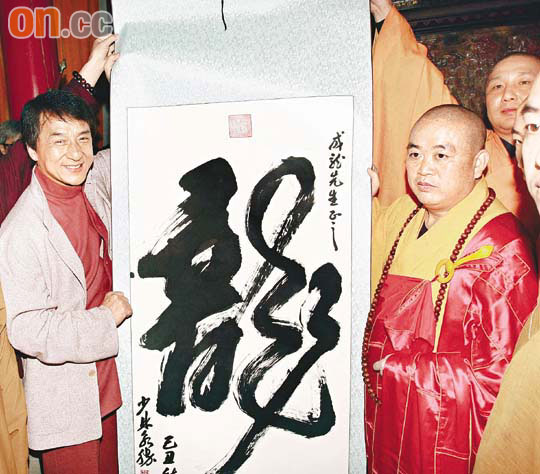 on.cc
成龍先生正之
龍
己丑
少林